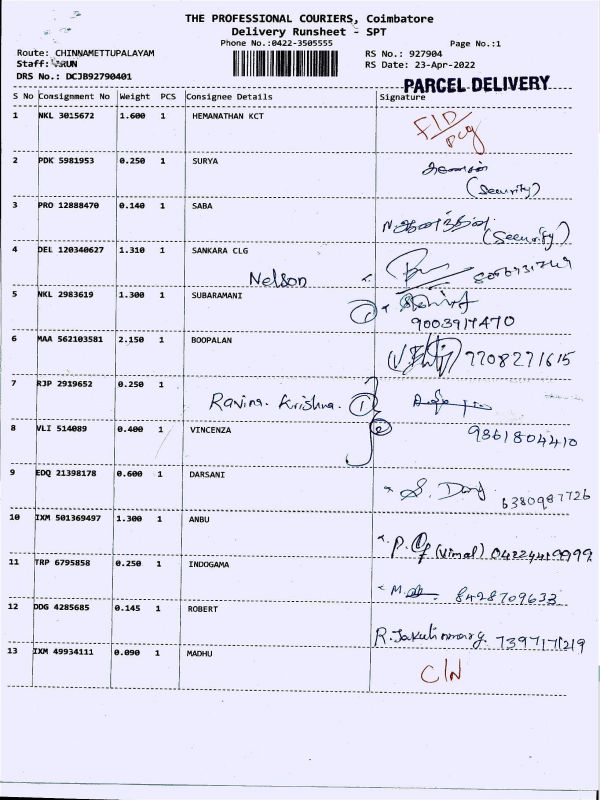 THE PROFESSIONAL COURIERS, Coimbatore
Delivery Runsheet - SPT
Phone No.:0422-3505555
Page No.:1
Route: CHINNAMETTUPALAYAM
RS No.: 927904
Staff: ARUN
RS Date: 23-Apr-2022
DRS No.: DCJB92790401
PARCEL DELIVERY
S No Consignment No Weight PCS Consignee Details Signature
1 NKL 3015672 1.600 1 HEMANATHAN KCT
2 PDK 5981953 0.250 1 SURYA
(Security)
3 PRO 12888470 0.140 1 SABA
(Security)
4 DEL 120340627 1.310 1 SANKARA CLG
Nelson
5 NKL 2983619 1.300 1 SUBARAMANI
1
9003917470
6 MAA 562103581 2.150 1 BOOPALAN
7708271615
7 RJP 2919652 0.250 1
Ravina. Krishna. 1
8 VLI 514089 0.400 1 VINCENZA 2
9361804410
9 EDQ 21398178 0.600 1 DARSANI
6380987726
10 IXM 501369497 1.300 1 ANBU
(Vimal) 04224419999
11 TRP 6795858 0.250 1 INDOGAMA
8428709633
12 DDG 4285685 0.145 1 ROBERT
13 IXM 49934111 0.090 1 MADHU
C/N